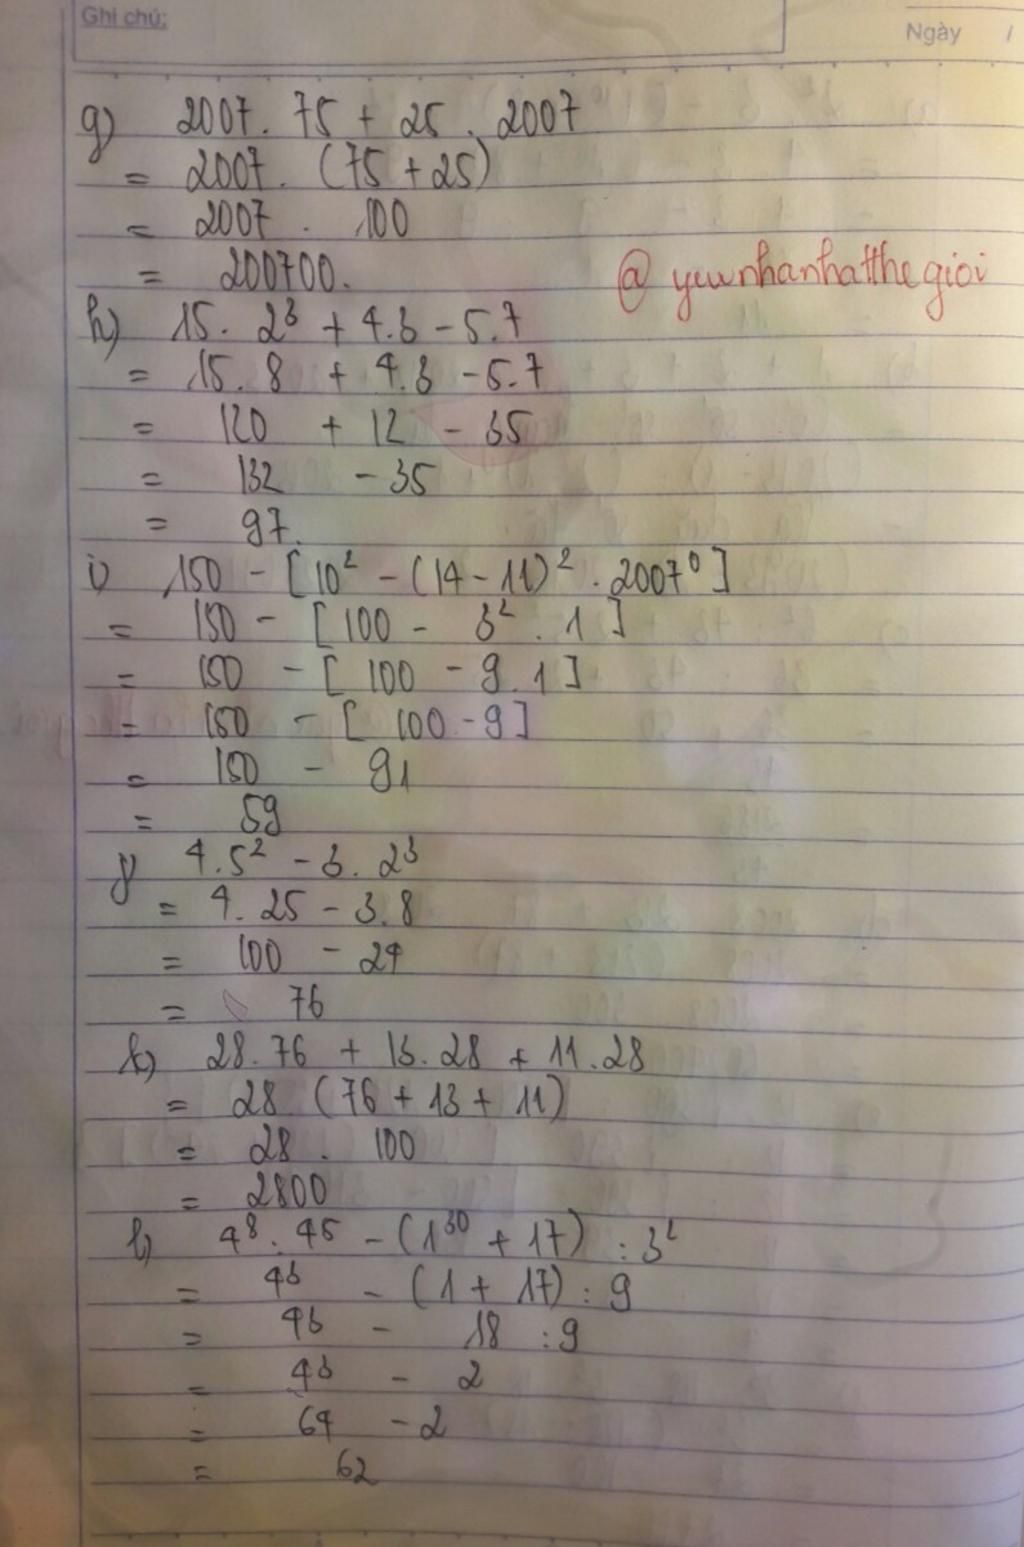 Ghi chú:
Ngày /
g) 2007. 75 + 25 . 2007
= 2007. (75 + 25)
= 2007 . 100
= 200700.
@ yeunhanhatthegioi
h) 15. 2³ + 4.3 - 5.7
= 15. 8 + 4.3 - 5.7
= 120 + 12 - 35
= 132 - 35
= 97.
i) 150 - [10² - (14 - 11)² . 2007⁰]
= 150 - [100 - 3² . 1]
= 150 - [100 - 9.1]
= 150 - [100 - 9]
= 150 - 91
= 59
j) 4.5² - 3. 2³
= 4. 25 - 3.8
= 100 - 24
= 76
k) 28.76 + 13.28 + 11.28
= 28 (76 + 13 + 11)
= 28 . 100
= 2800
l) 4⁸ : 4⁵ - (1³⁰ + 17) : 3²
= 4³ - (1 + 17) : 9
= 4³ - 18 : 9
= 4³ - 2
= 64 - 2
= 62